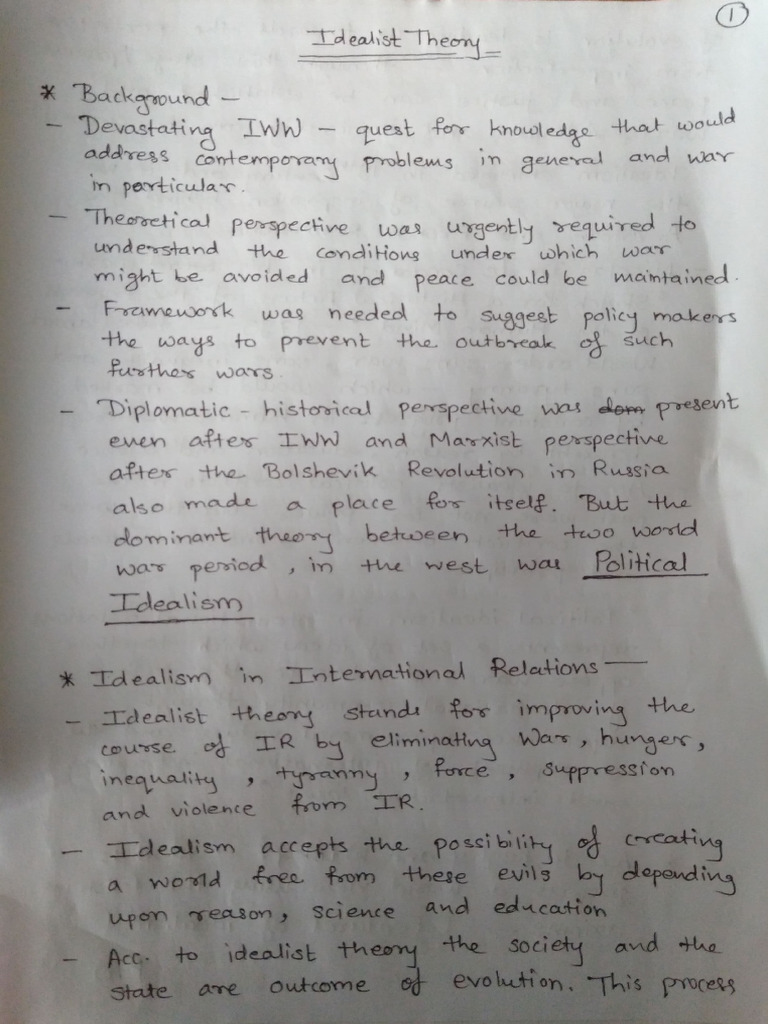 1
Idealist Theory
* Background -
- Devastating IWW - quest for knowledge that would
address contemporary problems in general and war
in particular.
- Theoretical perspective was urgently required to
understand the conditions under which war
might be avoided and peace could be maintained.
- Framework was needed to suggest policy makers
the ways to prevent the outbreak of such
further wars.
- Diplomatic - historical perspective was dom present
even after IWW and Marxist perspective
after the Bolshevik Revolution in Russia
also made a place for itself. But the
dominant theory between the two world
war period, in the west was Political
Idealism
* Idealism in International Relations -
- Idealist theory stands for improving the
course of IR by eliminating war, hunger,
inequality, tyranny, force, suppression
and violence from IR.
- Idealism accepts the possibility of creating
a world free from these evils by depending
upon reason, science and education
- Acc. to idealist theory the society and the
state are outcome of evolution. This process